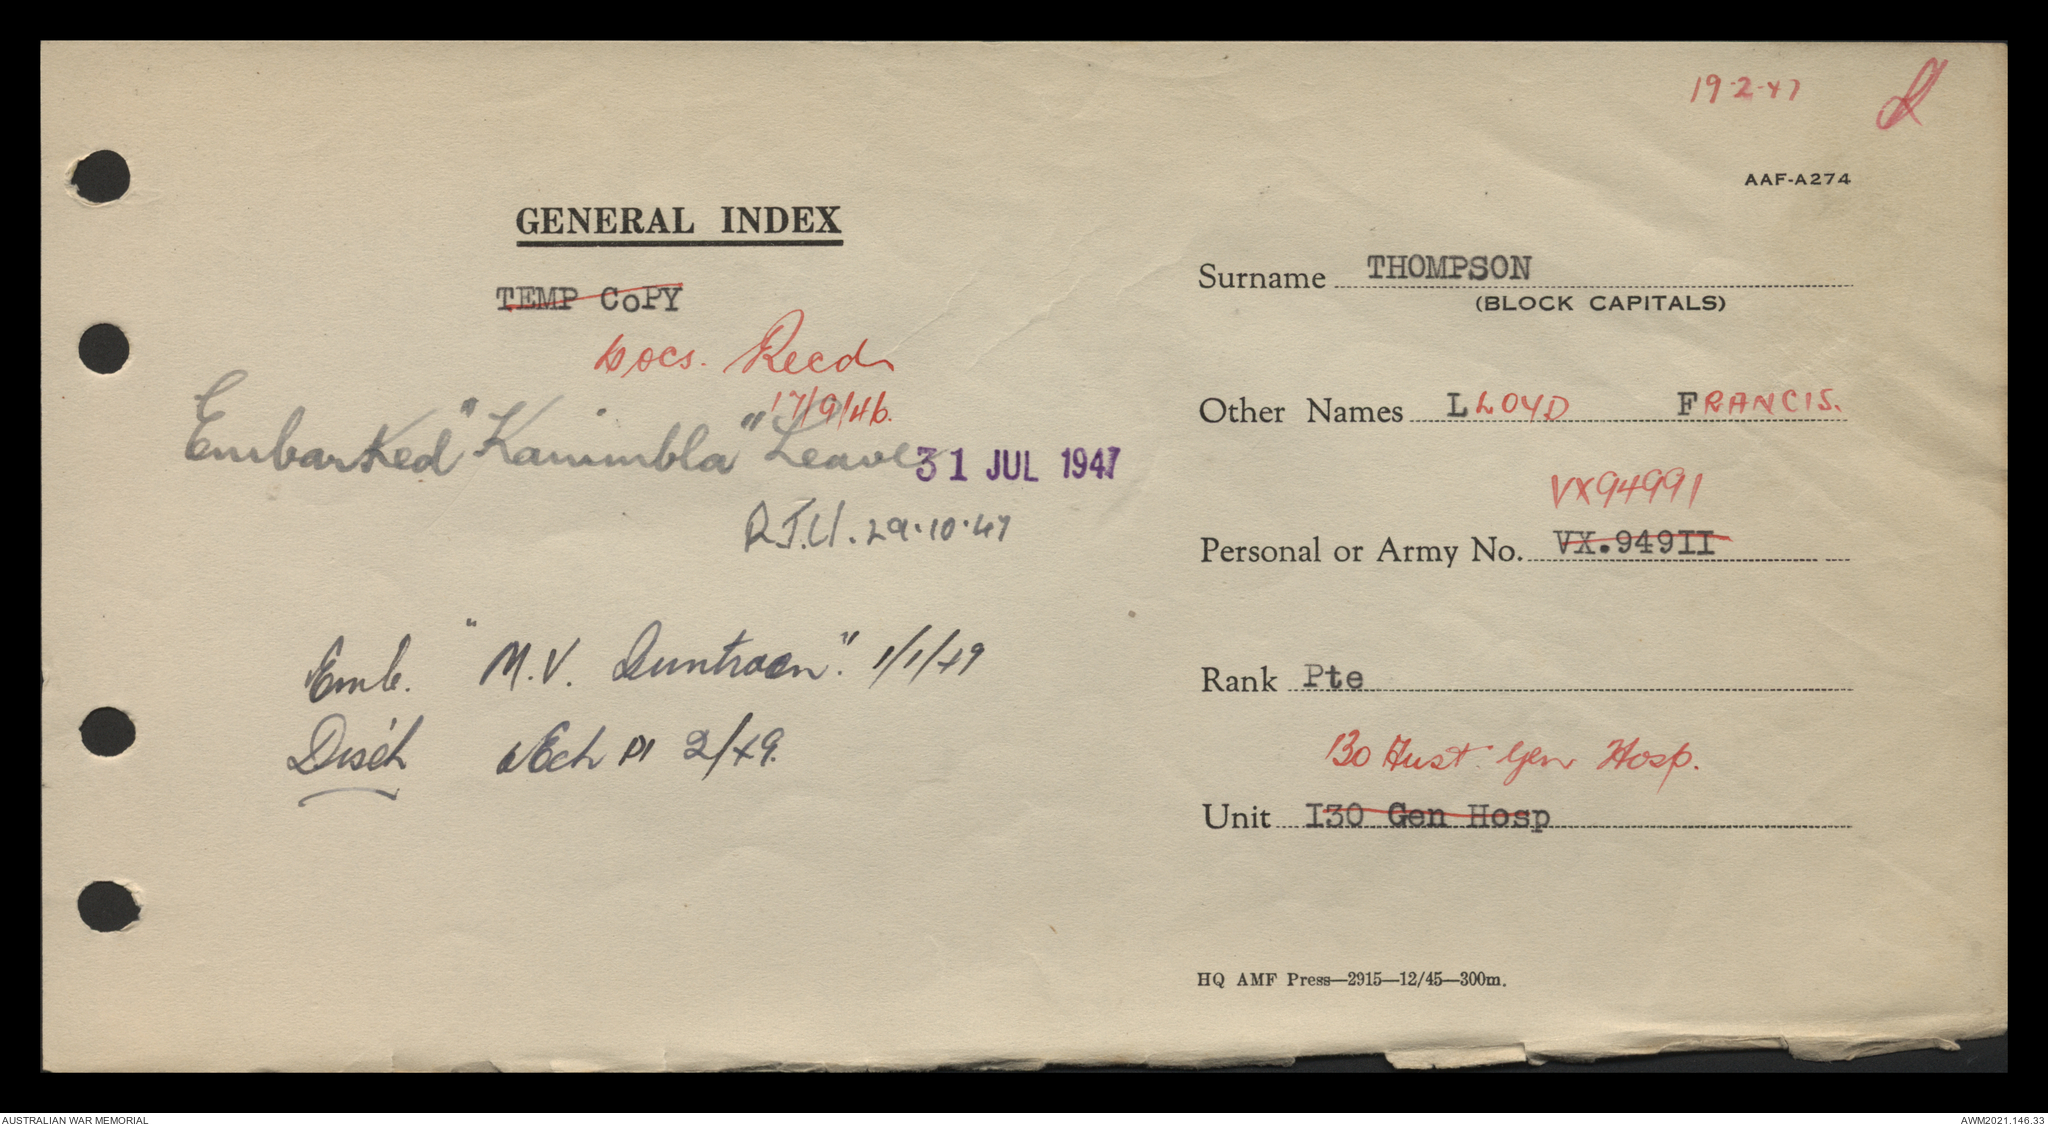 19-2-47
AAF-A274
GENERAL INDEX
TEMP CoPY
Docs. Recd
17/9/46.
Embarked "Kanimbla" Leave 31 JUL 1947
R.T.U. 29.10.47
Emb. "M.V. Duntroon". 1/1/49
Disch 2/49.
Surname THOMPSON
(BLOCK CAPITALS)
Other Names LLOYD FRANCIS.
VX94991
Personal or Army No. VX.949II
Rank Pte
130 Aust Gen Hosp.
Unit I30 Gen Hosp
HQ AMF Press—2915—12/45—300m.
AUSTRALIAN WAR MEMORIAL
AWM2021.146.33